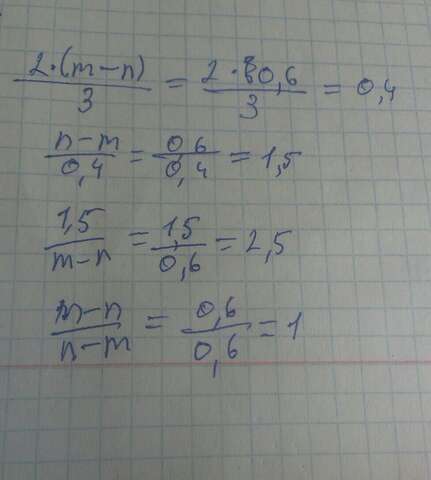 2·(m-n)/3 = 2·0,6/3 = 0,4
n-m/0,4 = 0,6/0,4 = 1,5
1,5/m-n = 1,5/0,6 = 2,5
m-n/n-m = 0,6/0,6 = 1